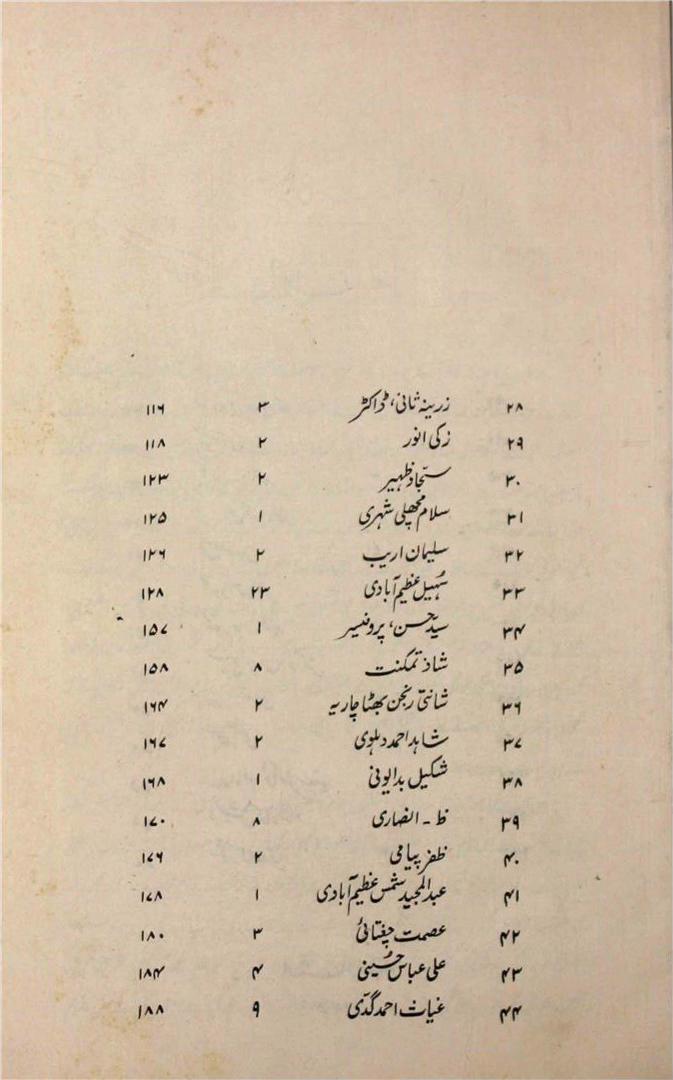 ۲۸ زرینہ ثانی، ڈاکٹر ۳ ۱۱۶
۲۹ زکی انور ۲ ۱۱۸
۳۰ سجّاد ظہیر ۲ ۱۲۳
۳۱ سلام مچھلی شہری ۱ ۱۲۵
۳۲ سلیمان اریب ۲ ۱۲۶
۳۳ سُہیل عظیم آبادی ۲۳ ۱۲۸
۳۴ سید حسن، پروفیسر ۱ ۱۵۷
۳۵ شاذ تمکنت ۸ ۱۵۸
۳۶ شانتی رنجن بھٹاچاریہ ۲ ۱۶۴
۳۷ شاہد احمد دہلوی ۲ ۱۶۷
۳۸ شکیل بدایونی ۱ ۱۶۸
۳۹ ظ - انصاری ۸ ۱۷۰
۴۰ ظفر پیامی ۲ ۱۷۶
۴۱ عبدالمجید شمس عظیم آبادی ۱ ۱۷۸
۴۲ عصمت چغتائی ۳ ۱۸۰
۴۳ علی عباس حُسینی ۴ ۱۸۴
۴۴ غیاث احمد گدّی ۹ ۱۸۸